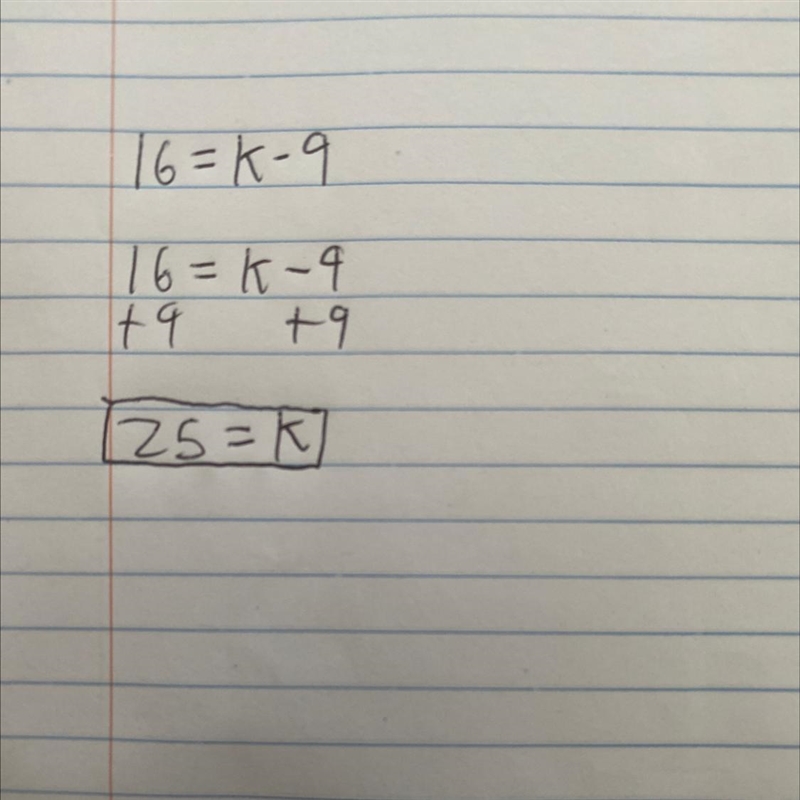 16 = k - 9
16 = k - 9
+9 +9
25 = k